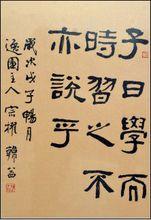 子曰學而
時習之不
亦說乎
歲次戊子暢月
逸園主人宗